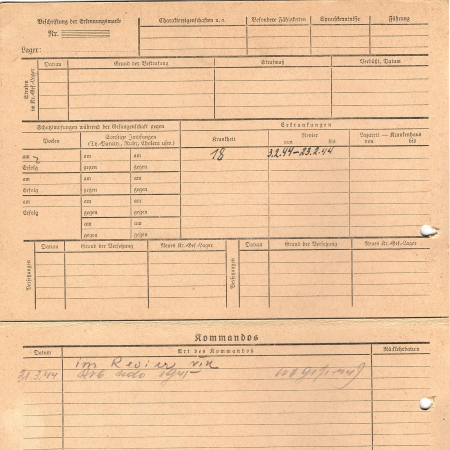 Beschriftung der Erkennungsmarke
Nr.
Lager:
Charaktereigenschaften u. a.
Besondere Fähigkeiten
Sprachkenntnisse
Führung
Strafen im Kr.-Gef.-Lager
Datum
Grund der Bestrafung
Strafmaß
Verbüßt, Datum
Schutzimpfungen während der Gefangenschaft gegen
Erkrankungen
Pocken
Sonstige Impfungen
(Ty.-Paraty., Ruhr, Cholera usw.)
Krankheit
Revier
von bis
Lazarett — Krankenhaus
von bis
am am am
18 3.2.44–23.2.44
Erfolg gegen gegen
am am am
Erfolg gegen gegen
am am am
Erfolg gegen gegen
am am
gegen gegen
am am
gegen gegen
Versetzungen
Datum
Grund der Versetzung
Neues Kr.-Gef.-Lager
Versetzungen
Datum
Grund der Versetzung
Neues Kr.-Gef.-Lager
Kommandos
Datum
Art des Kommandos
Rückkehrdatum
im Revier
31.3.44